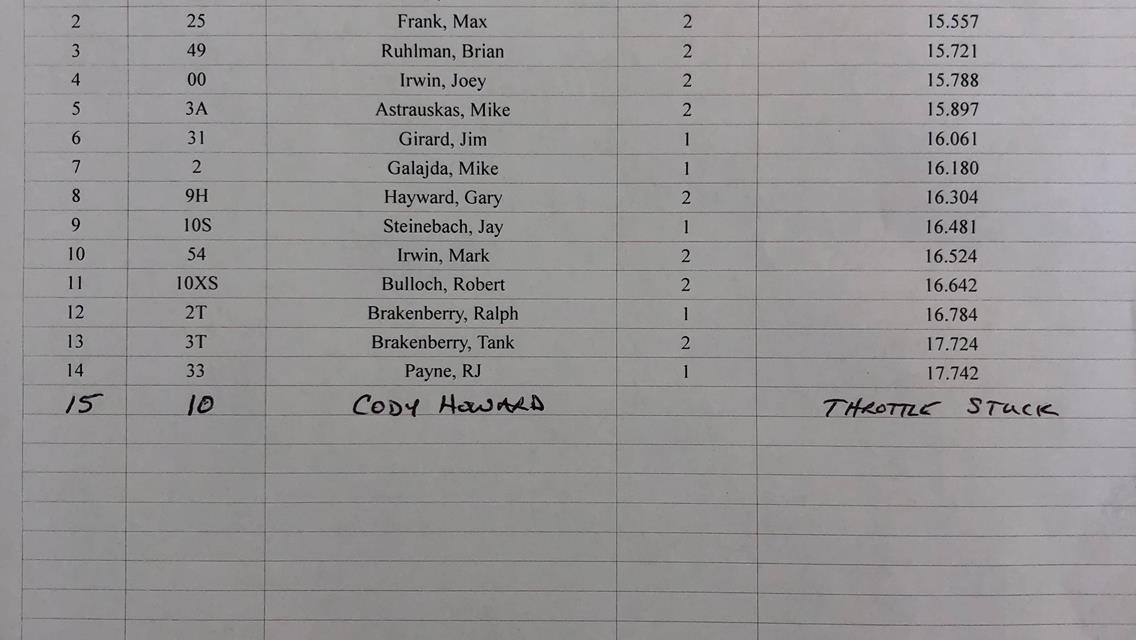 2 25 Frank, Max 2 15.557
3 49 Ruhlman, Brian 2 15.721
4 00 Irwin, Joey 2 15.788
5 3A Astrauskas, Mike 2 15.897
6 31 Girard, Jim 1 16.061
7 2 Galajda, Mike 1 16.180
8 9H Hayward, Gary 2 16.304
9 10S Steinebach, Jay 1 16.481
10 54 Irwin, Mark 2 16.524
11 10XS Bulloch, Robert 2 16.642
12 2T Brakenberry, Ralph 1 16.784
13 3T Brakenberry, Tank 2 17.724
14 33 Payne, RJ 1 17.742
15 10 CODY HOWARD THROTTLE STUCK